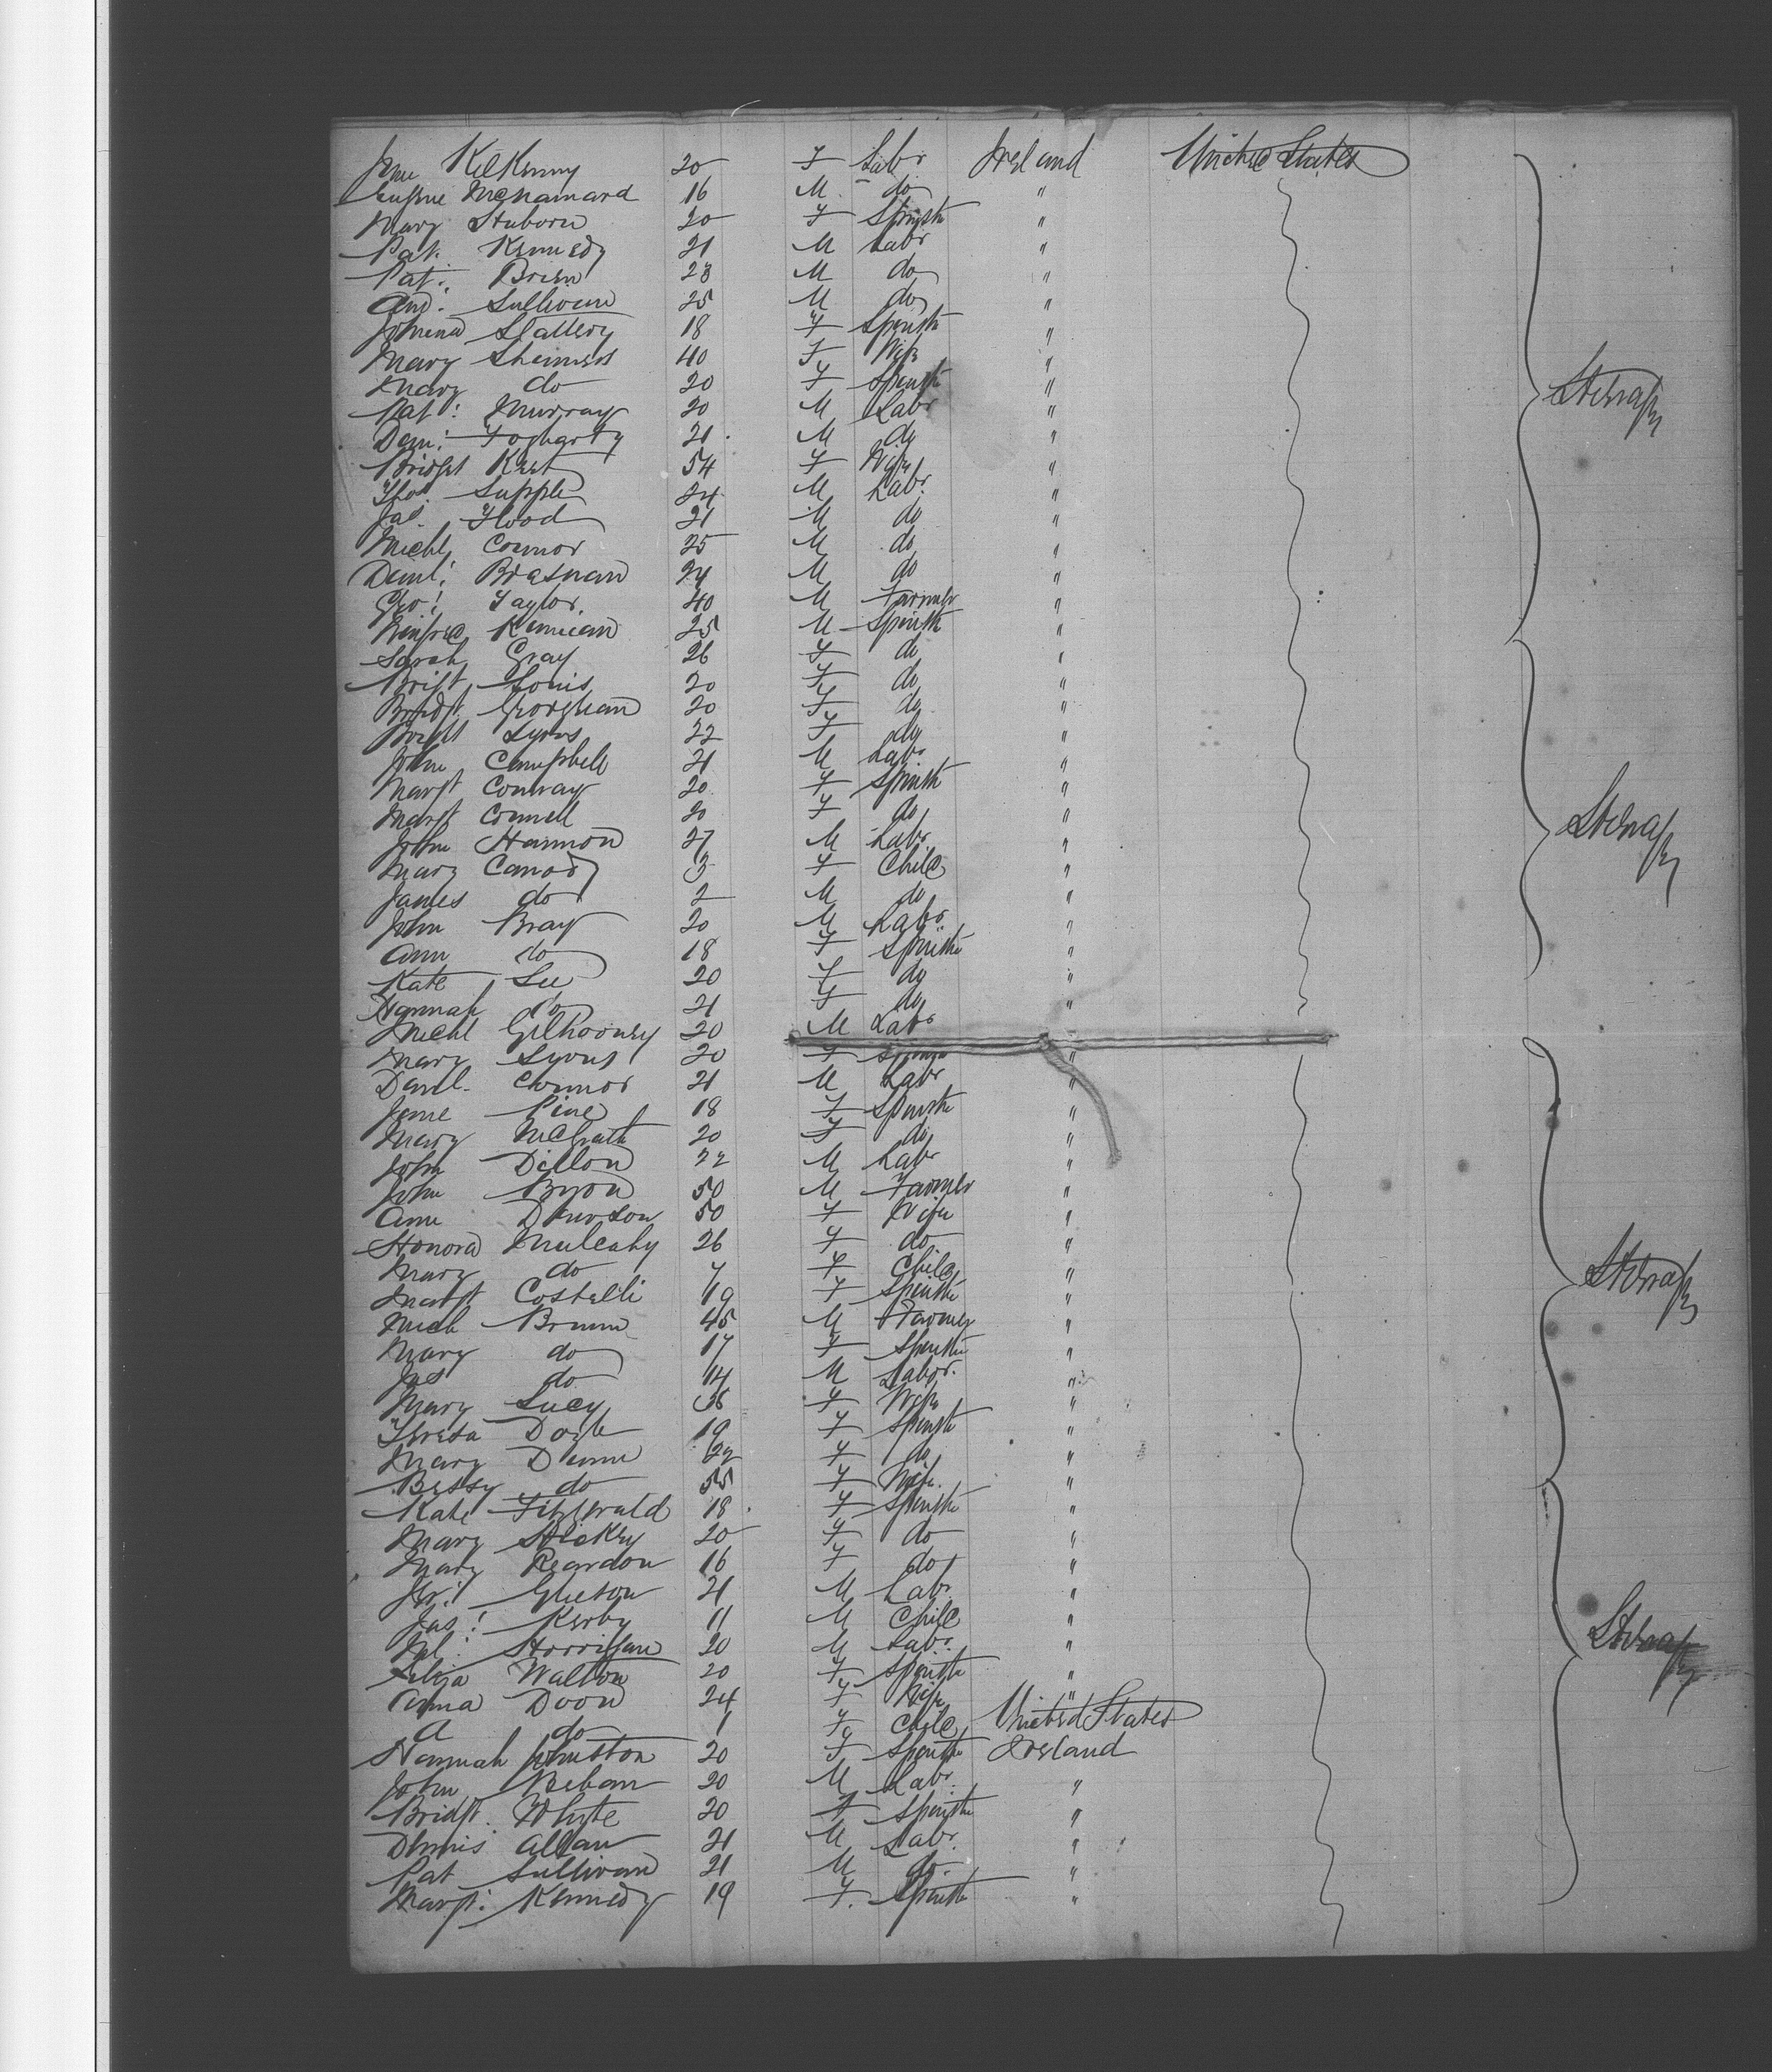 Jane Kilkenny 20 F Labr Ireland United States
Eugene McNamara 16 M do "
Mary Stuborn 20 F Spinster "
Pat. Kennedy 21 M Labr "
Pat. Brien 23 M do "
And. Sullivan 25 M do "
Johnena Slattery 18 F Spinstr "
Mary Shinners 40 F Wife "
Mary do 20 F Spinstr "
Pat: Murray 20 M Labr " Steerage
Dan: Fogharty 21 M do "
Bridget Kest 54 F Wife "
Thos. Supple 24 M Labr. "
Jas. Flood 21 M do "
Michl Connor 25 M do "
Danl: Brasnan 24 M do "
Geo: Taylor. 40 M Farmer "
Winfred Kenucan 25 M Spinstr "
Sarah Gray 26 F do "
Bridgt 20 F do "
Bridgt. Goroghan 20 F do "
Bridgt Lyons 22 F do "
John Campbell 21 M Labr "
Margt Conway 20 F Spinstr "
Margt Connell 20 F do " Steerage
John Hannon 27 M Labr. "
Mary Canody 3 F Child "
James do 2 M do "
John Bray 20 M Labr. "
Ann do 18 F Spinstr "
Kate Lee 20 F do "
Hannah do 21 F do "
Michl Gilhooney 20 M Labr
Mary Lyons 20 F Spinstr "
Danl. Connor 21 M Labr "
Jane Pine 18 F Spinstr "
Mary McGrath 20 F do "
John Dillon 22 M Labr "
John Byron 50 M Farmer "
Ann Dawson 50 F Wife "
Honora Mulcahy 26 F do "
Mary do 7 F Child " Steerage
Margt Costelli 19 F Spinstr "
Mich Brunn 45 M Farmer "
Mary do 17 F Spinstr "
Jas do 14 M Labor. "
Mary Lucy 36 F Wife "
Theresa Doyle 19 F Spinstr "
Mary Dunn 22 F do "
Bessy do 55 F Wife. "
Kate Fitzgerald 18 F Spinstr "
Mary Hickey 20 F do "
Mary Reardon 16 F do "
Jer: Gleeson 21 M Labr "
Jas: Kerby 11 M Child "
Horrigan 20 M Labr. " Steerage
Eliza Walton 20 F Spinstr "
Anna Doon 24 F Wife "
A do 1 F Child United States
Hannah Johnston 20 F Spinstr Ireland
John Behan 20 M Labr. "
Bridgt. Whyte 20 F Spinstr "
Dennis Allan 21 M Labr. "
Pat Sullivan 21 M do. "
Margt: Kennedy 19 F. Spinstr "